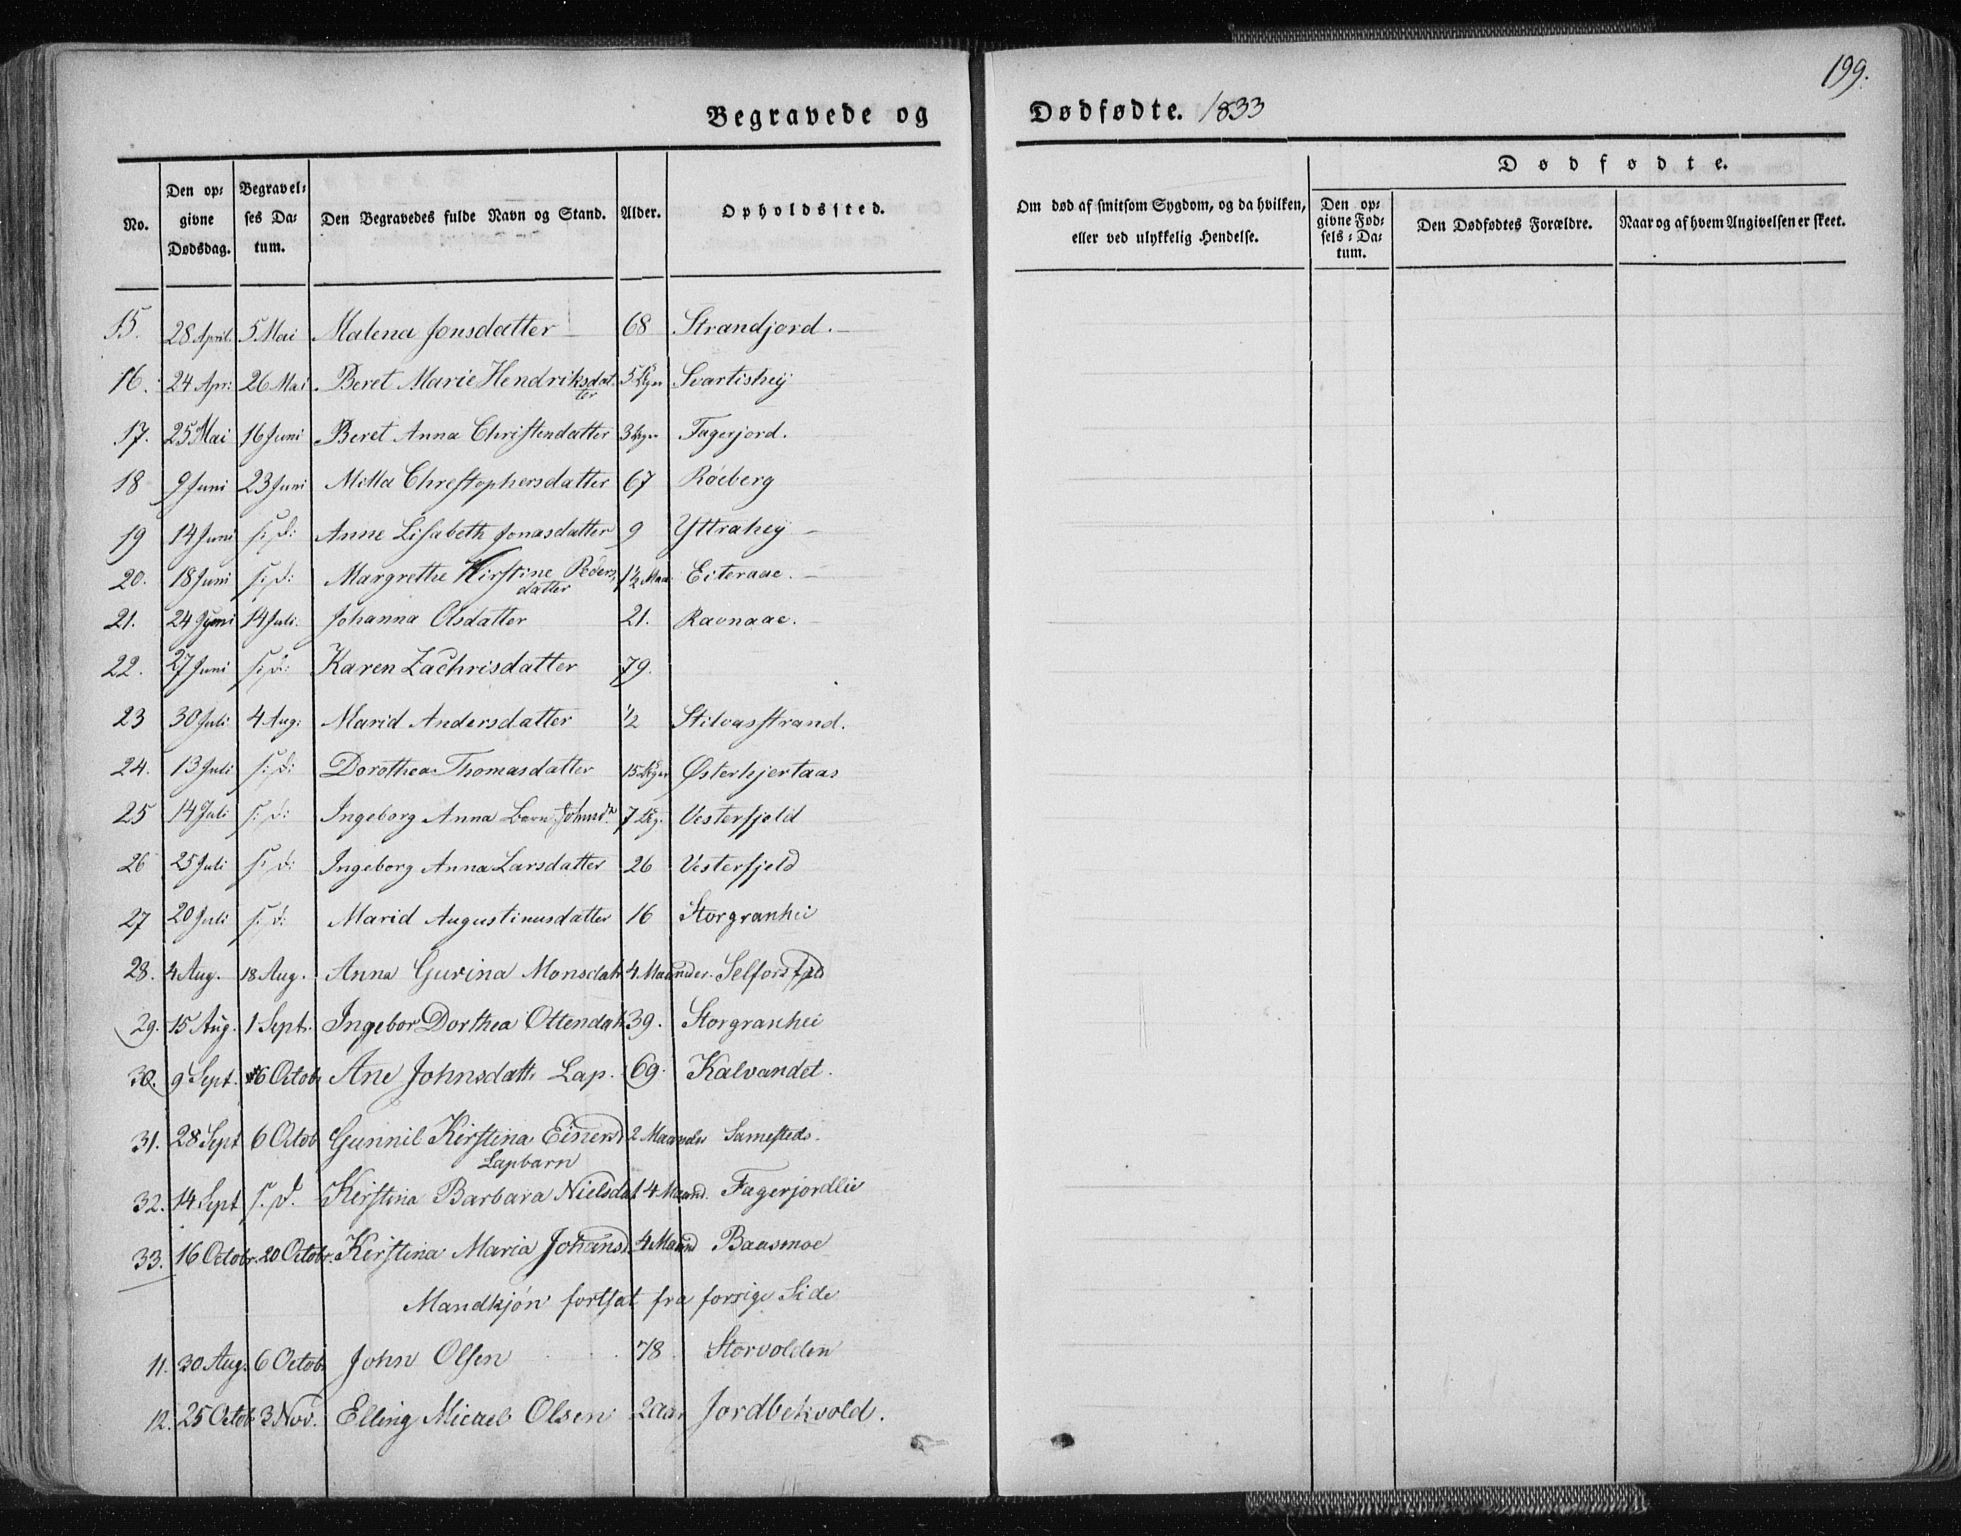 199.
Begravede og Dødfødte. 1833
No. | Den opgivne Dødsdag. | Begravelses Datum. | Den Begravedes fulde Navn og Stand. | Alder. | Opholdssted. | Om død af smitsom Sygdom, og da hvilken, eller ved ulykkelig Hendelse. | Dødfødte. | Den opgivne Fødsels-Datum. | Den Dødfødtes Forældre. | Naar og af hvem Angivelsen er skeet.
15. 28 April. 5 Mai Malena Jonsdatter 68 Strandjord.
16. 24 Apr: 26 Mai Beret Marie Hendriksdatter 5 Svartishey
17. 25 Mai 16 Juni Beret Anna Christendatter 3 Fagerjord.
18 9 Juni 23 Juni Mitta Chrestophersdatter 67 Røeberg
19 14 Juni s: d: Anne Lisabeth Jonasdatter 9 Yttrahey
20. 18 Juni s: d: Margrethe Kirstine Pedersdatter 1½ Maa Eiteraae.
21. 24 Juni 14 Juli. Johanna Olsdatter 21. Ravnaae.
22. 27 Juni s: d: Karen Zachrisdatter 79.
23 30 Juli 4 Aug: Marid Andersdatter ½ Stilvasstrand.
24. 13 Juli s: d: Dorothea Thomasdatter 15 Østerhjertaas
25 14 Juli s: d: Ingeborg Anna 7 Vesterfjeld
26 25 Juli s: d: Ingeborg Anna Larsdatter 26 Vesterfjeld
27 20 Juli s: d: Marid Augustinusdatter 16 Storgranhei
28. 4 Aug. 18 Aug. Anna Gurina Monsdatr 4 Maander. Selforsfjeld
29. 15 Aug. 1 Septr. Ingebor Dorthea Ottendatr 39. Storgranhei
30. 9 Sept. 6 Octob Ane Johnsdatt: Lap. 69. Kalvandet.
31. 28 Sept 6 Octob Gunnil Kirstina Einersd 2 Maander Samesteds.
Lapbarn
32. 14 Sept s. d. Kirstina Barbara Nielsdat 4 Maand. Fagerjordlie
33. 16 Octobr. 20 Octobr. Kirstina Maria Johansd 4 Maand Baasmoe
Mandkjøn fortsat fra forrige Side
11. 30 Aug. 6 Octob John Olsen 78 Storvolden
12. 25 Octob 3 Nov. Elling Micael Olsen 2 aar Jordbekvold.